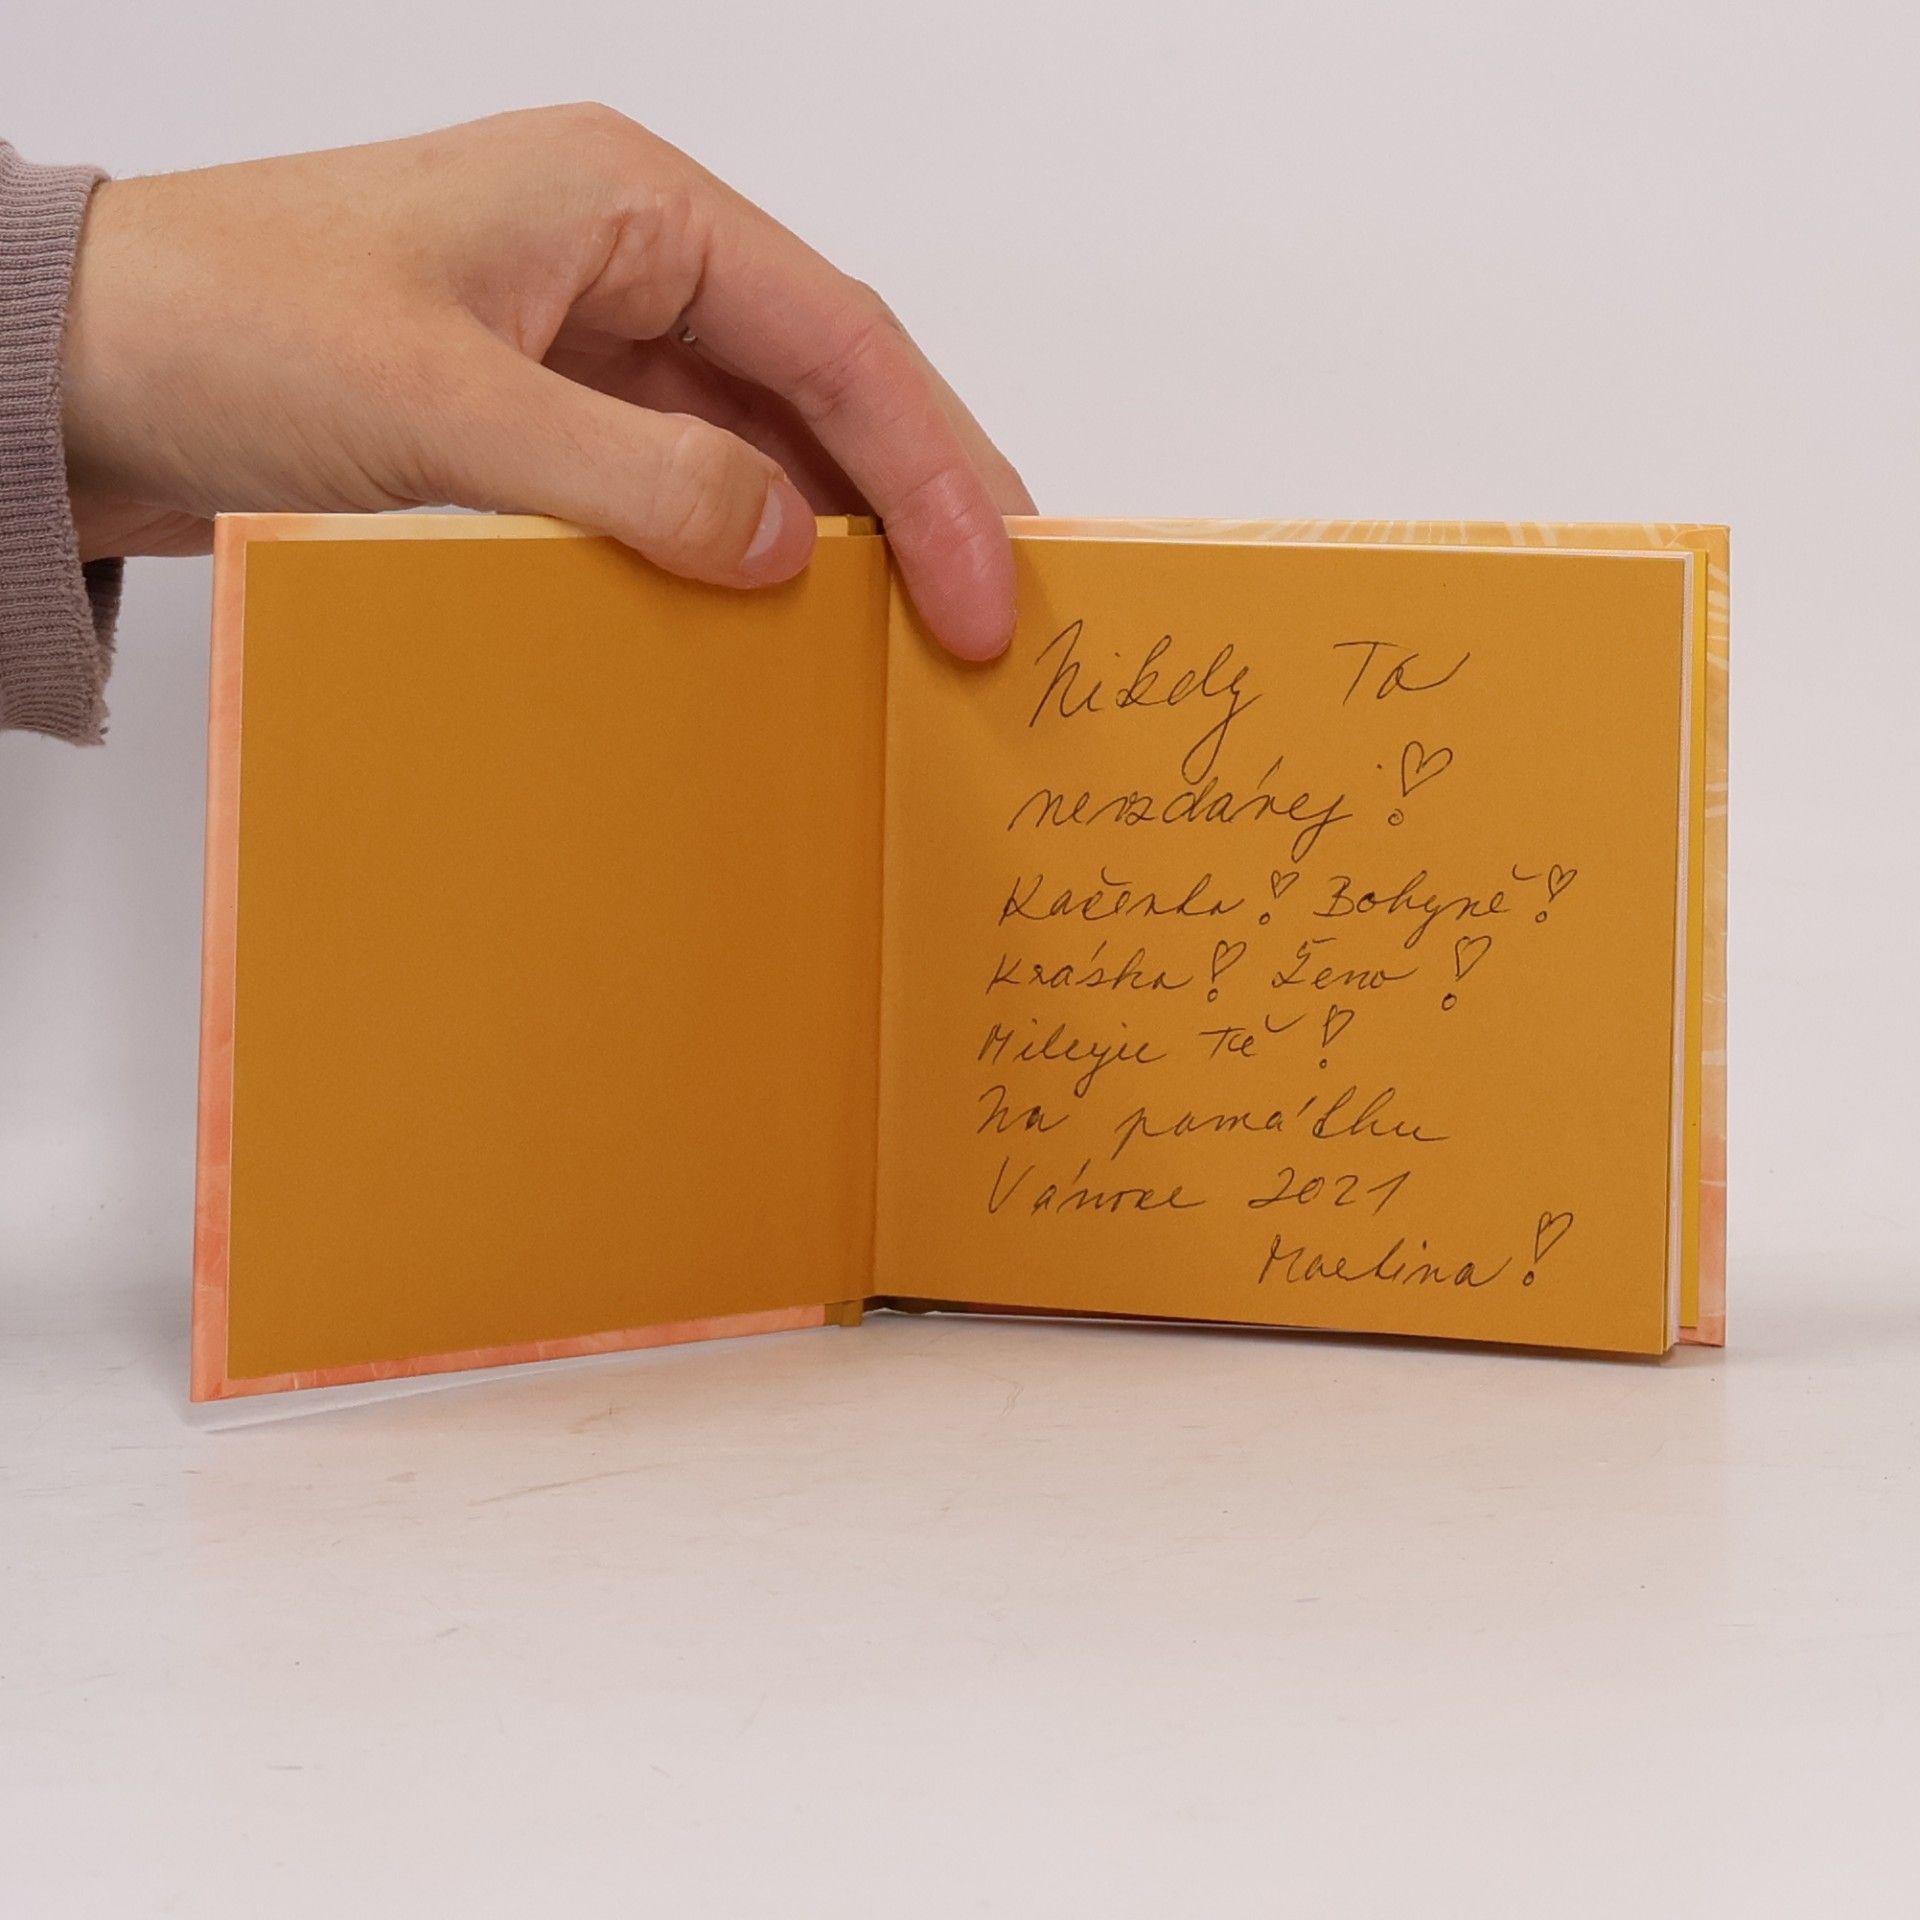 Nikdy To
nevzdávej!
Kačenko! Bohyně!
Kráska! Ženo!
Miluju Tě!
Na památku
Vánoce 2021
Martina!